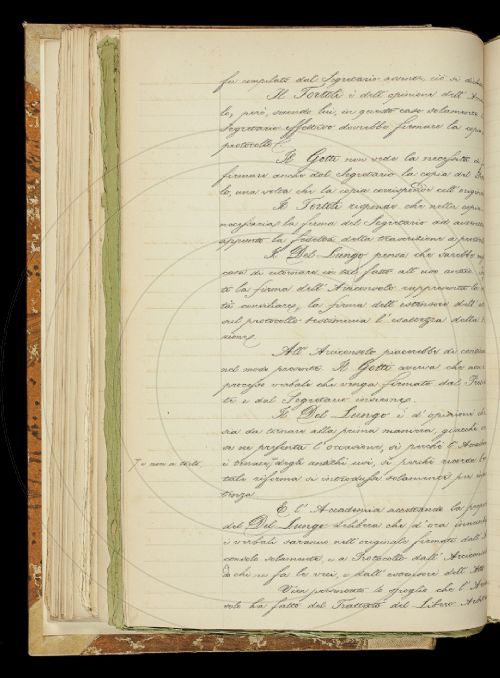 fu compilato dal Segretario assente, ciò si dichi
Il Tortoli è dell'opinione dell'Arci
lo, però, secondo lui, in questo caso solamente
Segretario effettivo dovrebbe firmare la copia
protocollo.
Il Gotti non vede la necessità di
firmare anche dal Segretario la copia del
lo, una volta che la copia corrisponde coll'origin
Il Tortoli risponde che nella copia
necessaria la firma del Segretario ad
appunto la fedeltà della trascrizione a protoc
Il Del Lungo pensa che sarebbe
caso di ritornare in tal fatto all'uso antico,
to la firma dell'Arciconsolo rappresenta la
tà consolare, la firma dell'estensore dell'
sul protocollo testimonia l'esattezza della
zione.
All'Arciconsolo piacerebbe di contin
nel modo presente. Il Gotti avvisa che ne
processo verbale che venga firmato dal Presi
te e dal Segretario insieme.
Il Del Lungo è d'opinione che
sia da tornare alla prima maniera, giacchè
sa ne presenta l'occasione, sì perchè l'Accadem
è tenace, degli antichi usi, sì perchè ricorda
7 e non a torto,
tale riforma s'introdusse solamente per
tenza
E l'Accademia accettando la propos
del Del Lungo delibera che d'ora innanzi
i verbali saranno nell'originale firmati dall'
consolo solamente, e a Protocollo dall'Arciconso
o chi ne fa le veci, e dall'estensore dell'Atto
Vien presentato lo spoglio che l'Arcicon
solo ha fatto del Trattato del Libero Arbit